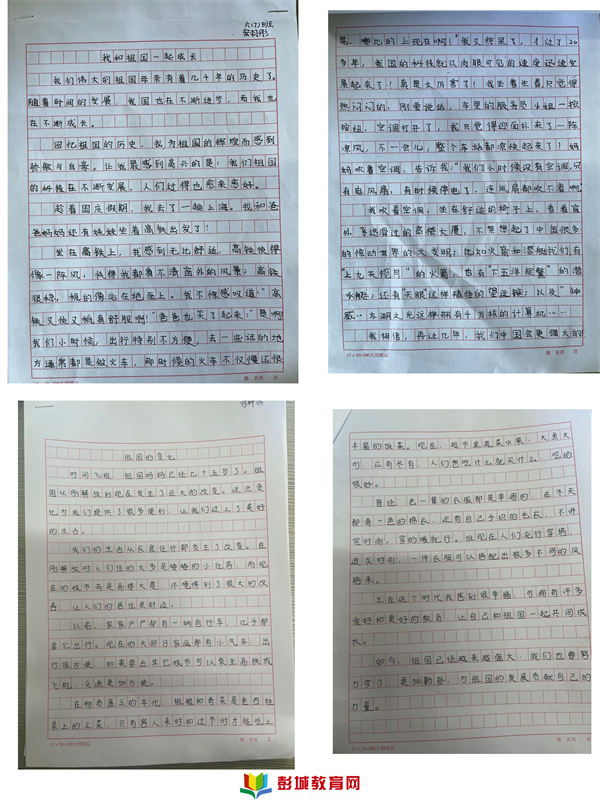 六(7)班
我和祖国一起成长
我们伟大的祖国母亲有着几千年的历史了。
随着时间的发展,我国也在不断进步,而我也
在不断成长。
回忆祖国的历史,我为祖国的辉煌而感到
骄傲与自豪。让我最感到高兴的是:我们祖国
的科技在不断发展,人们过得也愈来愈好。
趁着国庆假期,我去了一趟上海。我和爸
爸妈妈还有妹妹坐着高铁出发了!
坐在高铁上,我感到无比舒适,高铁快得
像一阵风,快得我都看不清窗外的风景;高铁
很稳,稳的像在地面上。我不禁感叹道:“高
铁又快又稳真舒服啊!”爸爸也笑了起来:“是啊
我们小时候,出行特别不方便,去一些远的地
方通常都是做火车,那时候的火车不仅慢还很
晃,哪比的上现在啊!”我又惊呆了,才过了20
多年,我国的科技就以肉眼可见的速度迅速发
展起来了!真是太厉害了!我坐着坐着只觉得
热闷闷的,刚要说话,车里的服务员小姐一按
按钮,空调打开了,我只觉得迎面扑来了一阵
凉风,不一会儿,整个车站都凉快起来了!妈
妈吹着空调,告诉我:“我们小时候没有空调,只
有电风扇,有时候停电了,连风扇都吹不着啊
我吹着空调,坐在舒适的椅子上,看着窗
外飞速滑过的高楼大厦,不禁想起了中国很多
的惊动世界的大发明:比如火箭和潜艇我们有
“上九天揽月”的火箭,也有“下五洋捉鳖”的潜
水艇;还有“天眼”这样精准的望远镜;以及“神
威·太湖之光这样拥有千万核的计算机……
我相信,再过几年,我们中国会更强大的
15×20=300
祖国的变化
时间飞梭,祖国妈妈已经七十五岁了。祖
国从刚解放到现在发生了巨大的改变。这些变
化为我们提供了很多便利,让我们过上了美好
的生活。
我们的生活从衣食住行都发生了改变。在
刚解放时人们住的大多是矮矮的小瓦房,而现
在的城市高是高楼大厦,环境得到了很大的改
善,让人们的居住更舒适。
以前,家家户户都有一辆自行车,几乎都
靠它出行。现在的大部分家庭都有小汽车,出
行很方便,如果要去其它城市可以乘坐高铁或
飞机,交通更加方便。
在物质匮乏的年代,粗粮和青菜是老百姓
桌上的主菜,只有客人来时和过节时才能吃上
15×20=300
丰富的饭菜。现在,超市里蔬菜水果、大鱼大
肉,应有尽有,人们想吃什么就买什么,吃的
很好。
曾经,色一集的衣服都是单调的,在冬天
都有一色的棉衣,还有自己手织的毛衣,不讲
究时尚,穿的暖就行。但现在人们流行穿搭,
追求时尚,一件衣服可以搭配出很多不同的风
格来。
生在这个时代我感到很幸福,可拥有许多
爱好和更好的教育,让自己和祖国一起共同成
长。
如今,祖国已经越来越强大,我们也要努
力学习,更加勤奋,为祖国的发展贡献自己的
力量。
彭城教育网